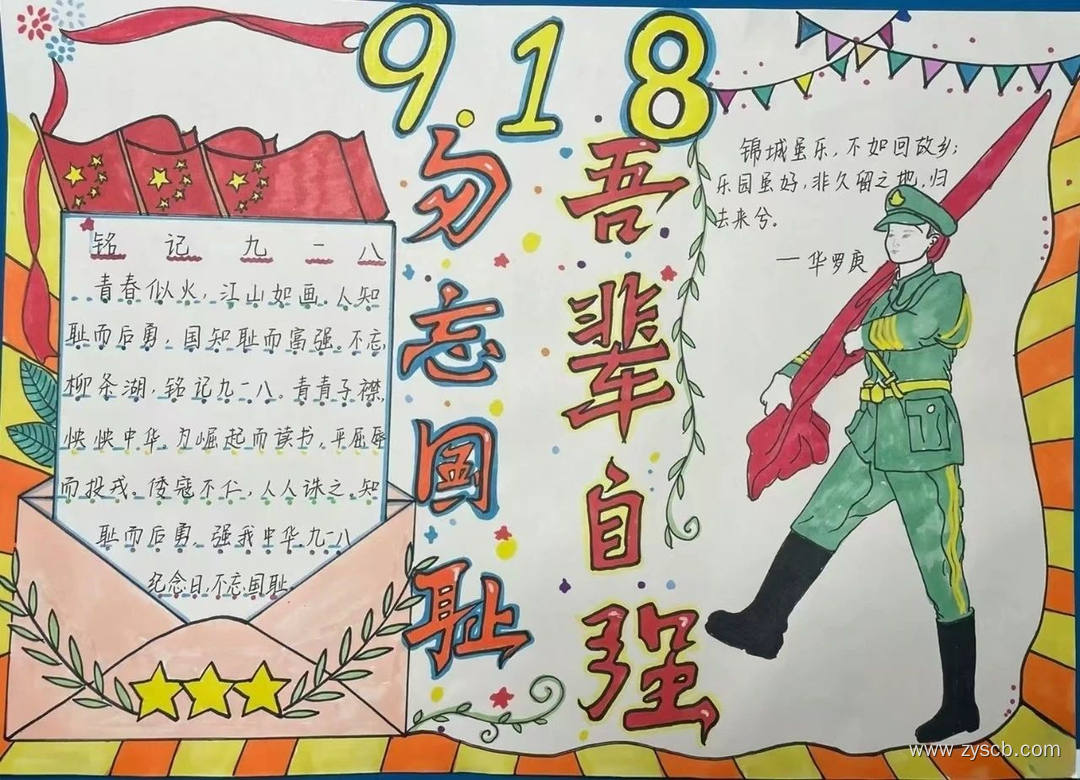 9.18
勿忘国耻
吾辈自强
铭记九一八
青春似火,江山如画。人知
耻而后勇,国知耻而富强。不忘
柳条湖,铭记九一八。青青子襟,
怏怏中华,为崛起而读书,平屈辱
而投戎。倭寇不仁,人人诛之。知
耻而后勇,强我中华。九一八
纪念日,不忘国耻。
锦城虽乐,不如回故乡;
乐园虽好,非久留之地。归
去来兮。
—华罗庚
www.zyscb.com